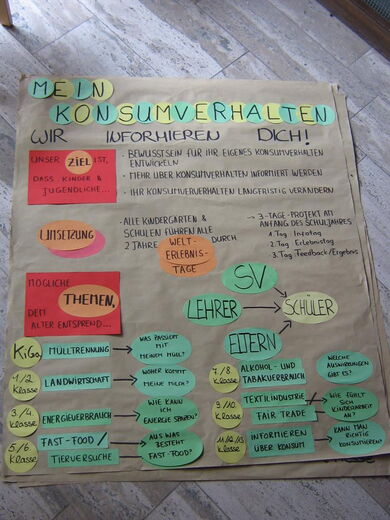 MEIN
KONSUMVERHALTEN
WIR INFORMIEREN DICH!
UNSER ZIEL IST,
DASS KINDER &
JUGENDLICHE...
- BEWUSSTSEIN FÜR IHR EIGENES KONSUMVERHALTEN
ENTWICKELN
- MEHR ÜBER KONSUMVERHALTEN INFORMIERT WERDEN
- IHR KONSUMVERVERHALTEN LANGFRISTIG VERÄNDERN
UMSETZUNG
- ALLE KINDERGÄRTEN &
SCHULEN FÜHREN ALLE
2 JAHRE WELT-
ERLEBNIS-
TAGE DURCH
-> 3-TAGE-PROJEKT AM
ANFANG DES SCHULJAHRES
1. Tag: Infotag
2. Tag: Erlebnistag
3. Tag: Feedback/Ergebnis
MÖGLICHE
THEMEN,
DEM
ALTER ENTSPREND...
SV
LEHRER
SCHÜLER
ELTERN
KiGa
MÜLLTRENNUNG
WAS PASSIERT MIT
MEINEM MÜLL?
1./2.
Klasse
LANDWIRTSCHAFT
WOHER KOMMT
MEINE MILCH?
3./4.
Klasse
ENERGIEVERBRAUCH
WIE KANN
ICH
ENERGIE SPAREN?
5./6.
Klasse
FAST-FOOD /
TIERVERSUCHE
AUS WAS
BESTEHT
FAST-FOOD?
7./8.
Klasse
ALKOHOL- UND
TABAKVERBRAUCH
WELCHE
AUSWIRKUNGEN
GIBT ES?
9./10.
Klasse
TEXTILINDUSTRIE /
FAIR TRADE
WIE FÜHLT
SICH
KINDERARBEIT
AN?
11./12./13
Klasse
INFORMIEREN
ÜBER KONSUM
KANN MAN
RICHTIG
KONSUMIEREN?